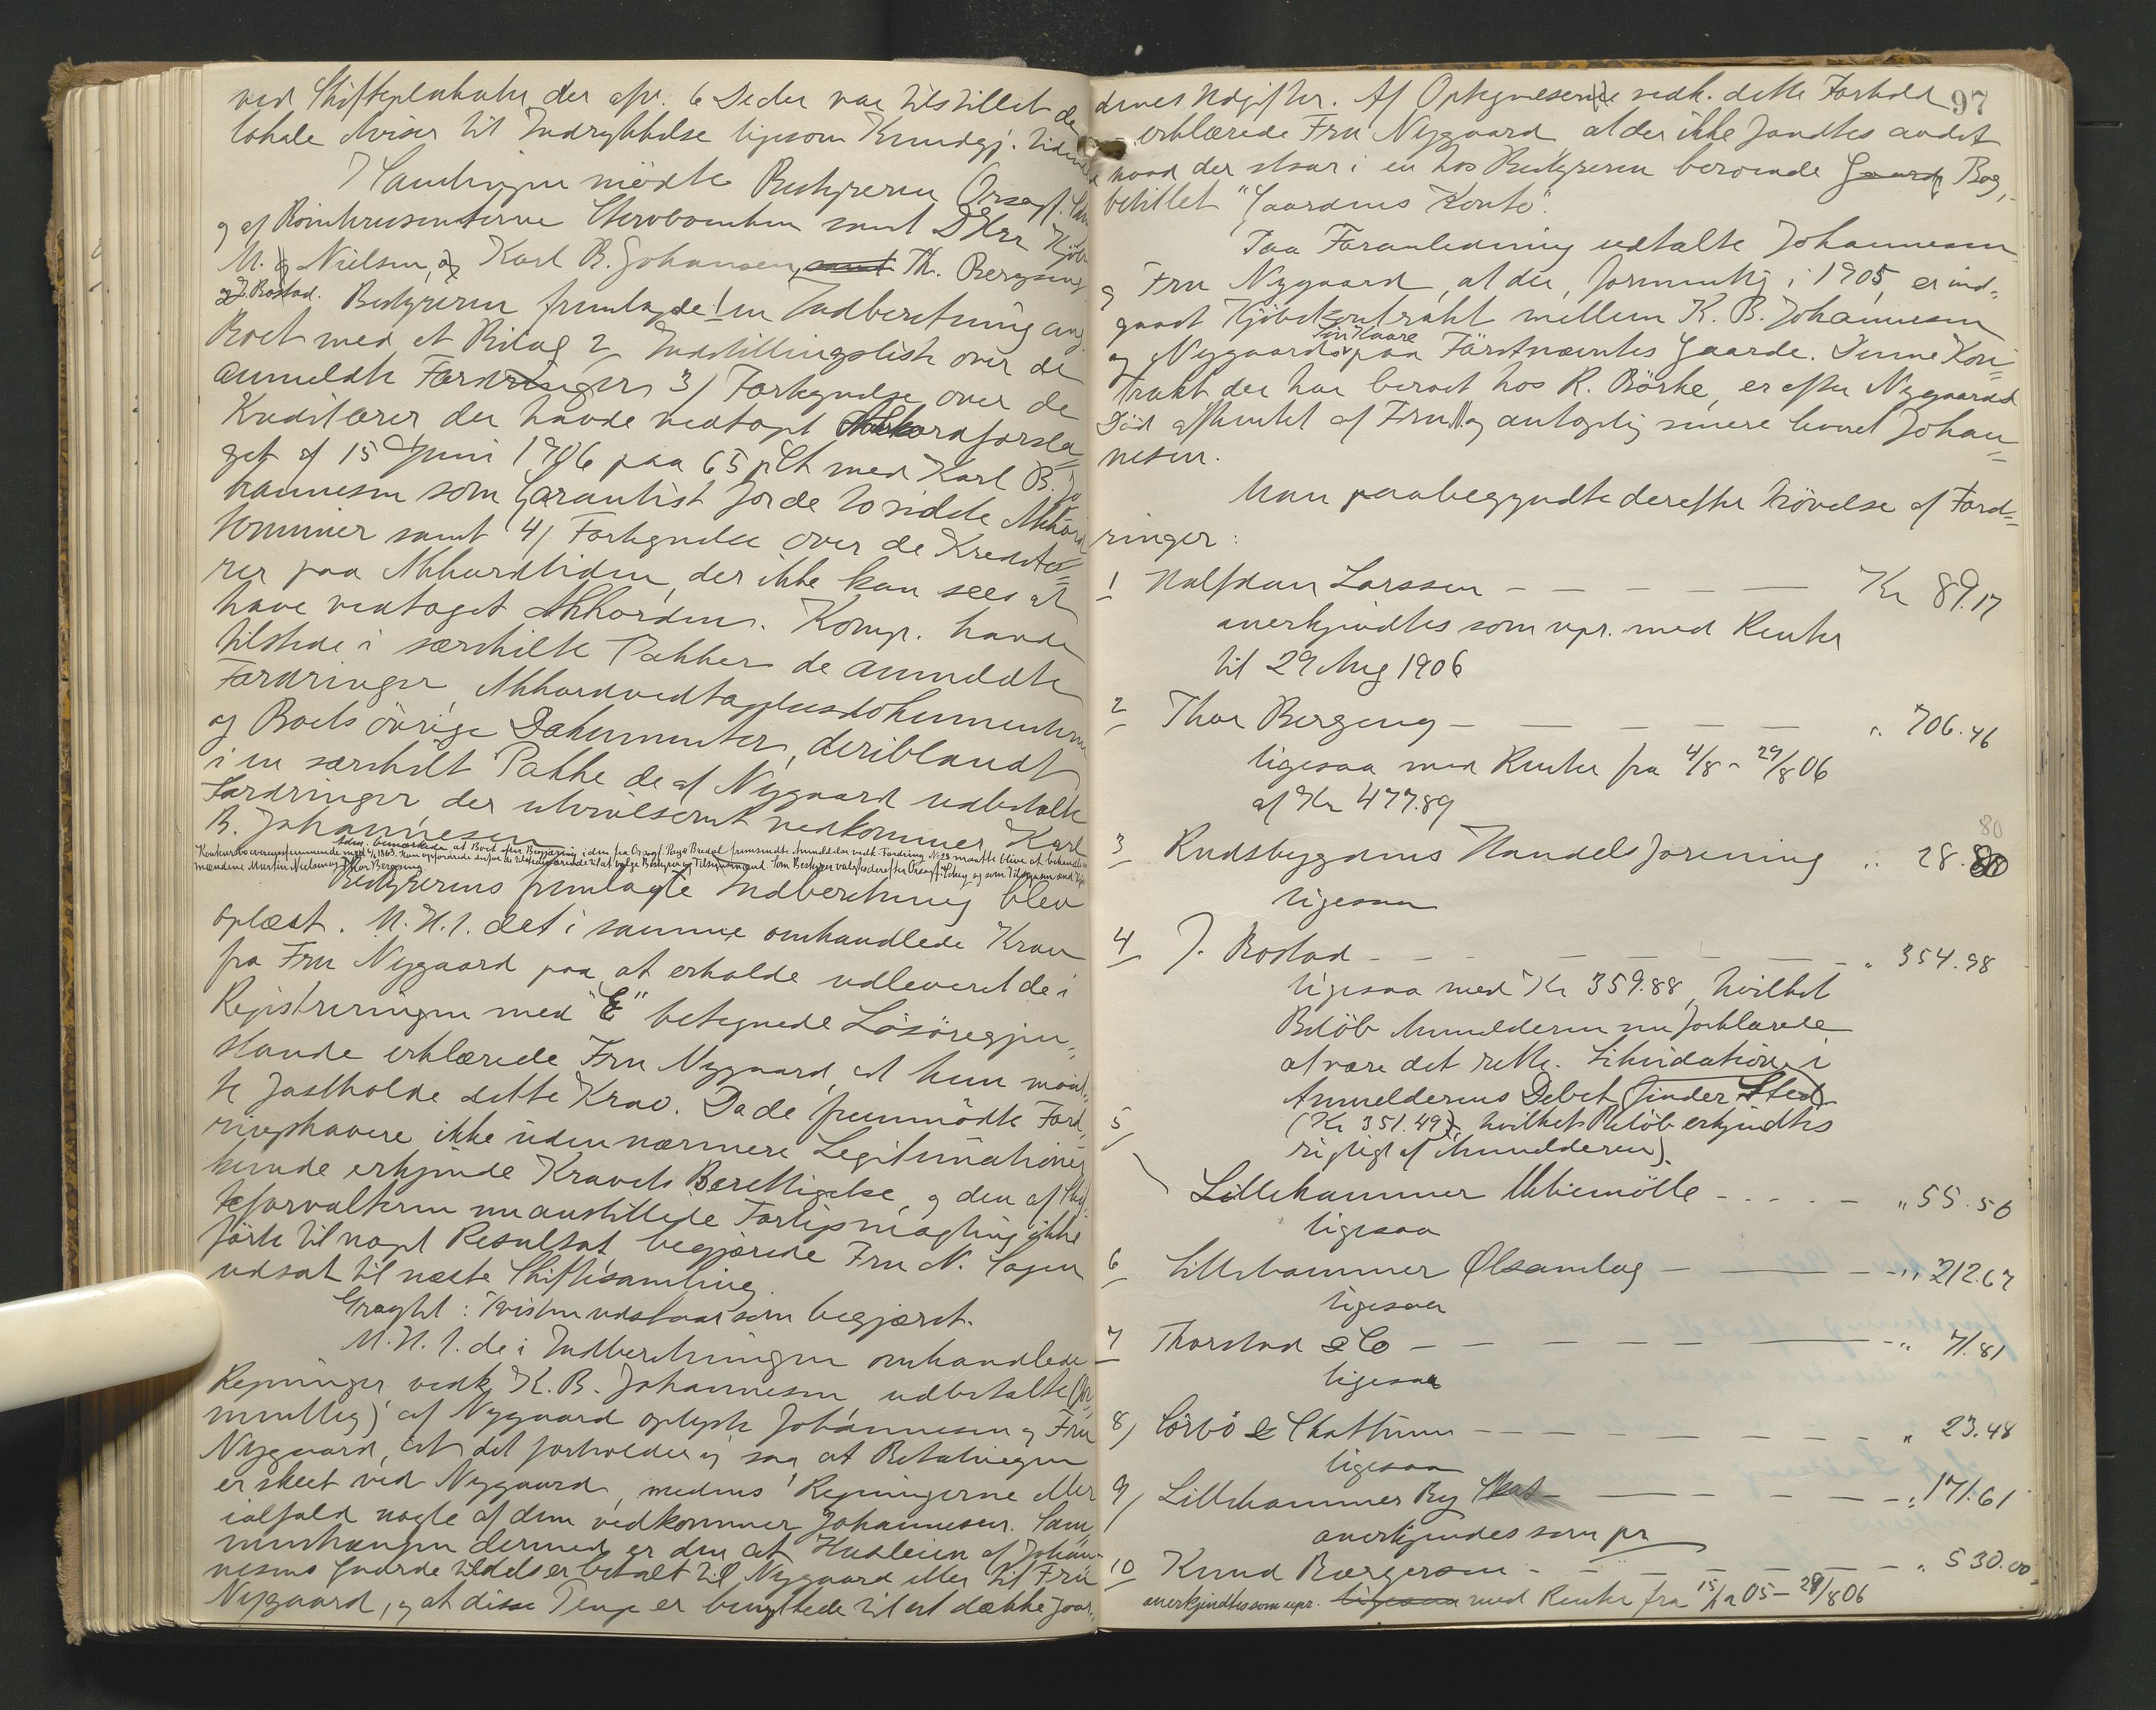 ved Skifteplakater der afv. 6 Deder var tilstillet de
lokale Aviser til Indrykkelse ligesom Kundgj. Tidende
I Samlingen mødte Bestyreren Orsagf.
og af Rominteressenterne Stervboenken samt DHrr Kjøbm
M. Nielsen, og Karl B. Johansen, samt Th. Bergseng
og J. Bostad. Bestyreren fremlagde 1 en Indberetning ang.
Boet med et Bilag 2 Indstillingsliste over de
anmeldte Fordringer 3) Fortegnelse over de
Kreditorer der havde vedtaget Akkordforsla=
get af 15 Juni 1906 paa 65 pCt med Karl B. Jo
hannesen som Garantist for de to sidste Akkord
terminer samt 4) Fortegnelse over de Kredito=
rer paa Akkordtiden, der ikke kan sees at
have vedtaget Akkorden. Komp. havde
tilstede i særskilte Pakker de anmeldte
Fordringer, Akkordvedtagelsesdokumenterne
og Boets övrige Dokumenter, deriblandt
i en særskilt Pakke de af Nygaard udbetalte
Fordringer der utvivlsomt vedkommer Karl
B. Johannesen
Adm. bemærkede at Boet efter Begjæring i den fra Orsagf. Paye Bredal fremsendte Anmeldelse vedk. Fordring No 28 maatte blive at behandle
Konkurslovens 4/6 1863. Man opfordrede derfor de tilstedeværende til at vælge Bestyrer og Tilsynsmænd. Som Bestyrer valgtes derefter Orsagf. og som Tilsynsmænd Kjøb
mændene Martin Nielsen og Thor Bergseng
Bestyrerens fremlagte Indberetning blev
oplæst. M. H. t. det i samme omhandlede Krav
fra Fru Nygaard paa at erholde udleveret de i
Registreringen med "E" betegnede Lösöregjen=
stande erklærede Fru Nygaard, at hun maat=
te fastholde dette Krav. Da de fremmødte Ford=
ringshavere ikke uden nærmere Legitimationer
kunde erkjende Kravets Berettigelse, og den af Skif
teforvalteren nu anstillede Forligsmægling ikke
førte til noget Resultat, begjærede Fru N. Sagen
udsat til næste Skiftesamling.
Eragtet: Tvisten udstaar som begjæret.
M. H. t. de i Indberetningen omhandlede
Regninger vedk. K. B. Johannesen udbetalte (for
mentlig) af Nygaard oplyste Johannesen og Fru
Nygaard, at det forholder sig saa, at Betalingen
er skeet ved Nygaard, medens Regningerne eller
ialfald nogle af dem vedkommer Johannesen. Sam=
menhængen dermed er den at Husleien af Johan=
nesens Gaarde tildels er betalt til Nygaard eller til Fru
Nygaard, og at disse Penge er benyttede til at dække Gaar=
97
denes Udgifter. Af Optegnelser vedk. dette Forhold
erklærede Fru Nygaard, at der ikke fandtes andet
hvad der staar i en hos Bestyreren beroende Gaard Bog,
betitlet "Gaardens Konto".
Paa Foranledning udtalte Johannesen
og Fru Nygaard, at der, formentlig i 1905, er ind=
gaaet Kjøbekontrakt mellem K. B. Johannesen
og Nygaards Sön Kaare paa Förstnævntes Gaarde. Denne Kon=
trakt der har beroet hos R. Börke, er efter Nygaards
Död afhentet af Fru N og antagelig senere leveret Johan=
nesen.
Man paabegyndte derefter Prövelse af Ford=
ringer:
1 Halfdan Larssen - - - - - Kr 89.17
anerkjendtes som upr. med Renter
til 29 Aug 1906
2 Thor Bergseng - - - - - " 706.46
ligesaa med Renter fra 4/8 - 29/8 06
af Kr 477.89
80
3 Rudsbygdens Handelsforening " 28.80
ligesaa
4 J. Bostad - - - - - " 354.98
ligesaa med Kr 359.88, hvilket
Belöb Anmelderen nu forklarede
at være det rette. Likvidation i
Anmelderens Debet finder Sted
(Kr 351.49), hvilket Belöb erkjendtes
rigtigt af Anmelderen).
5 Lillehammer Aktiemölle - - - - - " 55.50
ligesaa
6 Lillehammer Ølsamlag - - - - " 212.67
ligesaa
7 Thorstad & Co - - - - - - " 71.81
ligesaa
8) Sörbö & Skattum - - - - - - - " 23.48
ligesaa
9) Lillehammer By Skat - - - - - " 171.61
anerkjendes som pr
10 Knud Børgersen - - - - - - " 530.00
anerkjendtes som upr. ligesaa med Renter fra 15/12 05 - 29/8 06